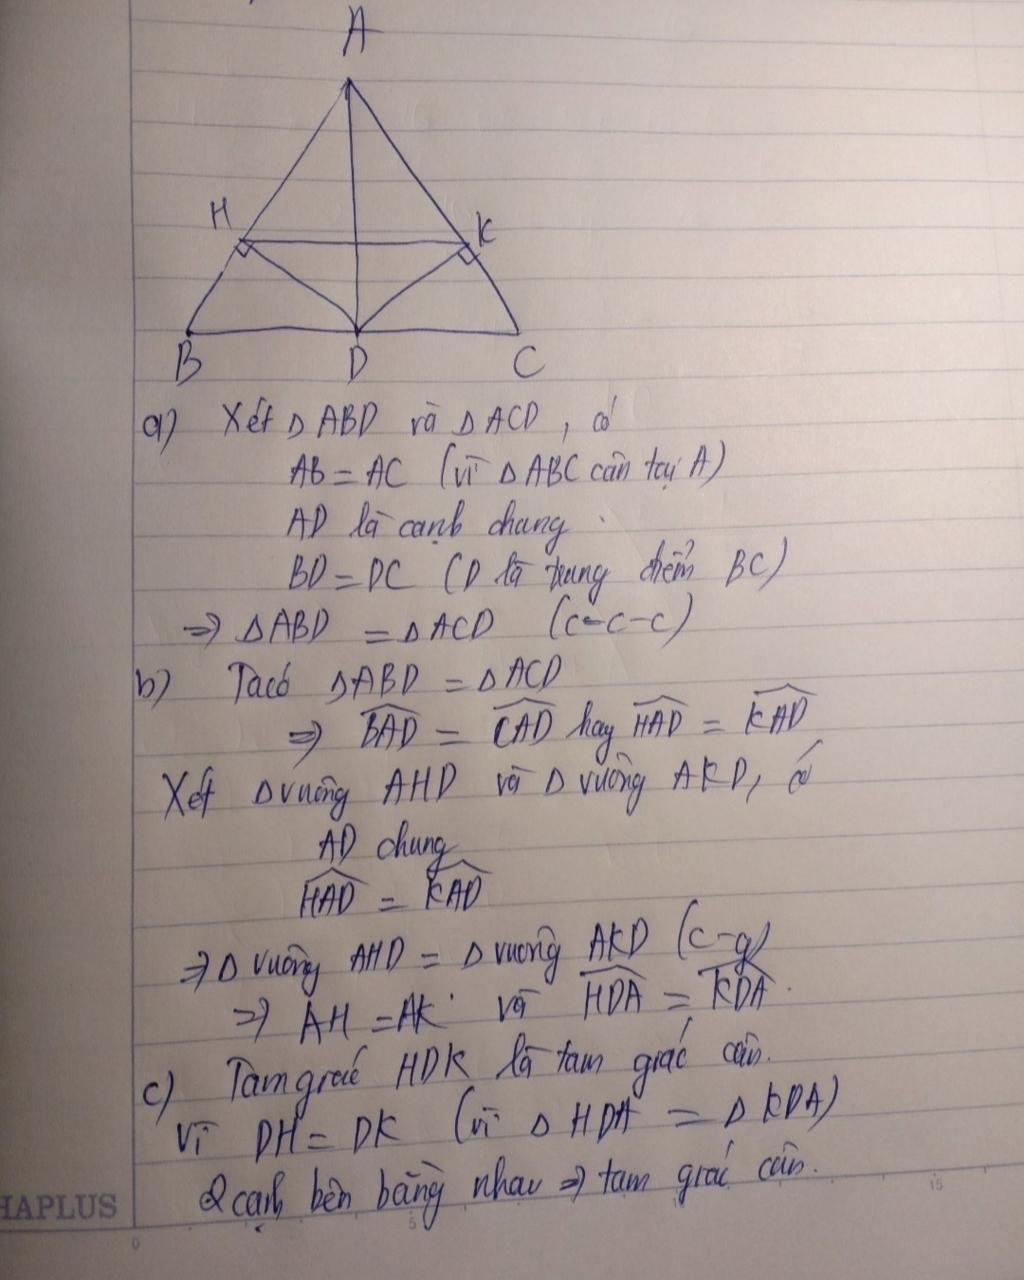 A
H
K
B
D
C
a) Xét Δ ABD và Δ ACD, có
AB = AC (vì Δ ABC cân tại A)
AD là cạnh chung
BD = DC (D là trung điểm BC)
=> ΔABD = ΔACD (c-c-c)
b) Ta có ΔABD = ΔACD
=> \widehat{BAD} = \widehat{CAD} hay \widehat{HAD} = \widehat{KAD}
Xét Δ vuông AHD và Δ vuông AKD, có
AD chung
\widehat{HAD} = \widehat{KAD}
=> Δ vuông AHD = Δ vuông AKD (c-g)
=> AH = AK và \widehat{HDA} = \widehat{KDA}.
c) Tam giác HDK là tam giác cân.
Vì DH = DK (vì Δ HDA = Δ KDA)
2 cạnh bên bằng nhau => tam giác cân.
HAPLUS
0
5
15